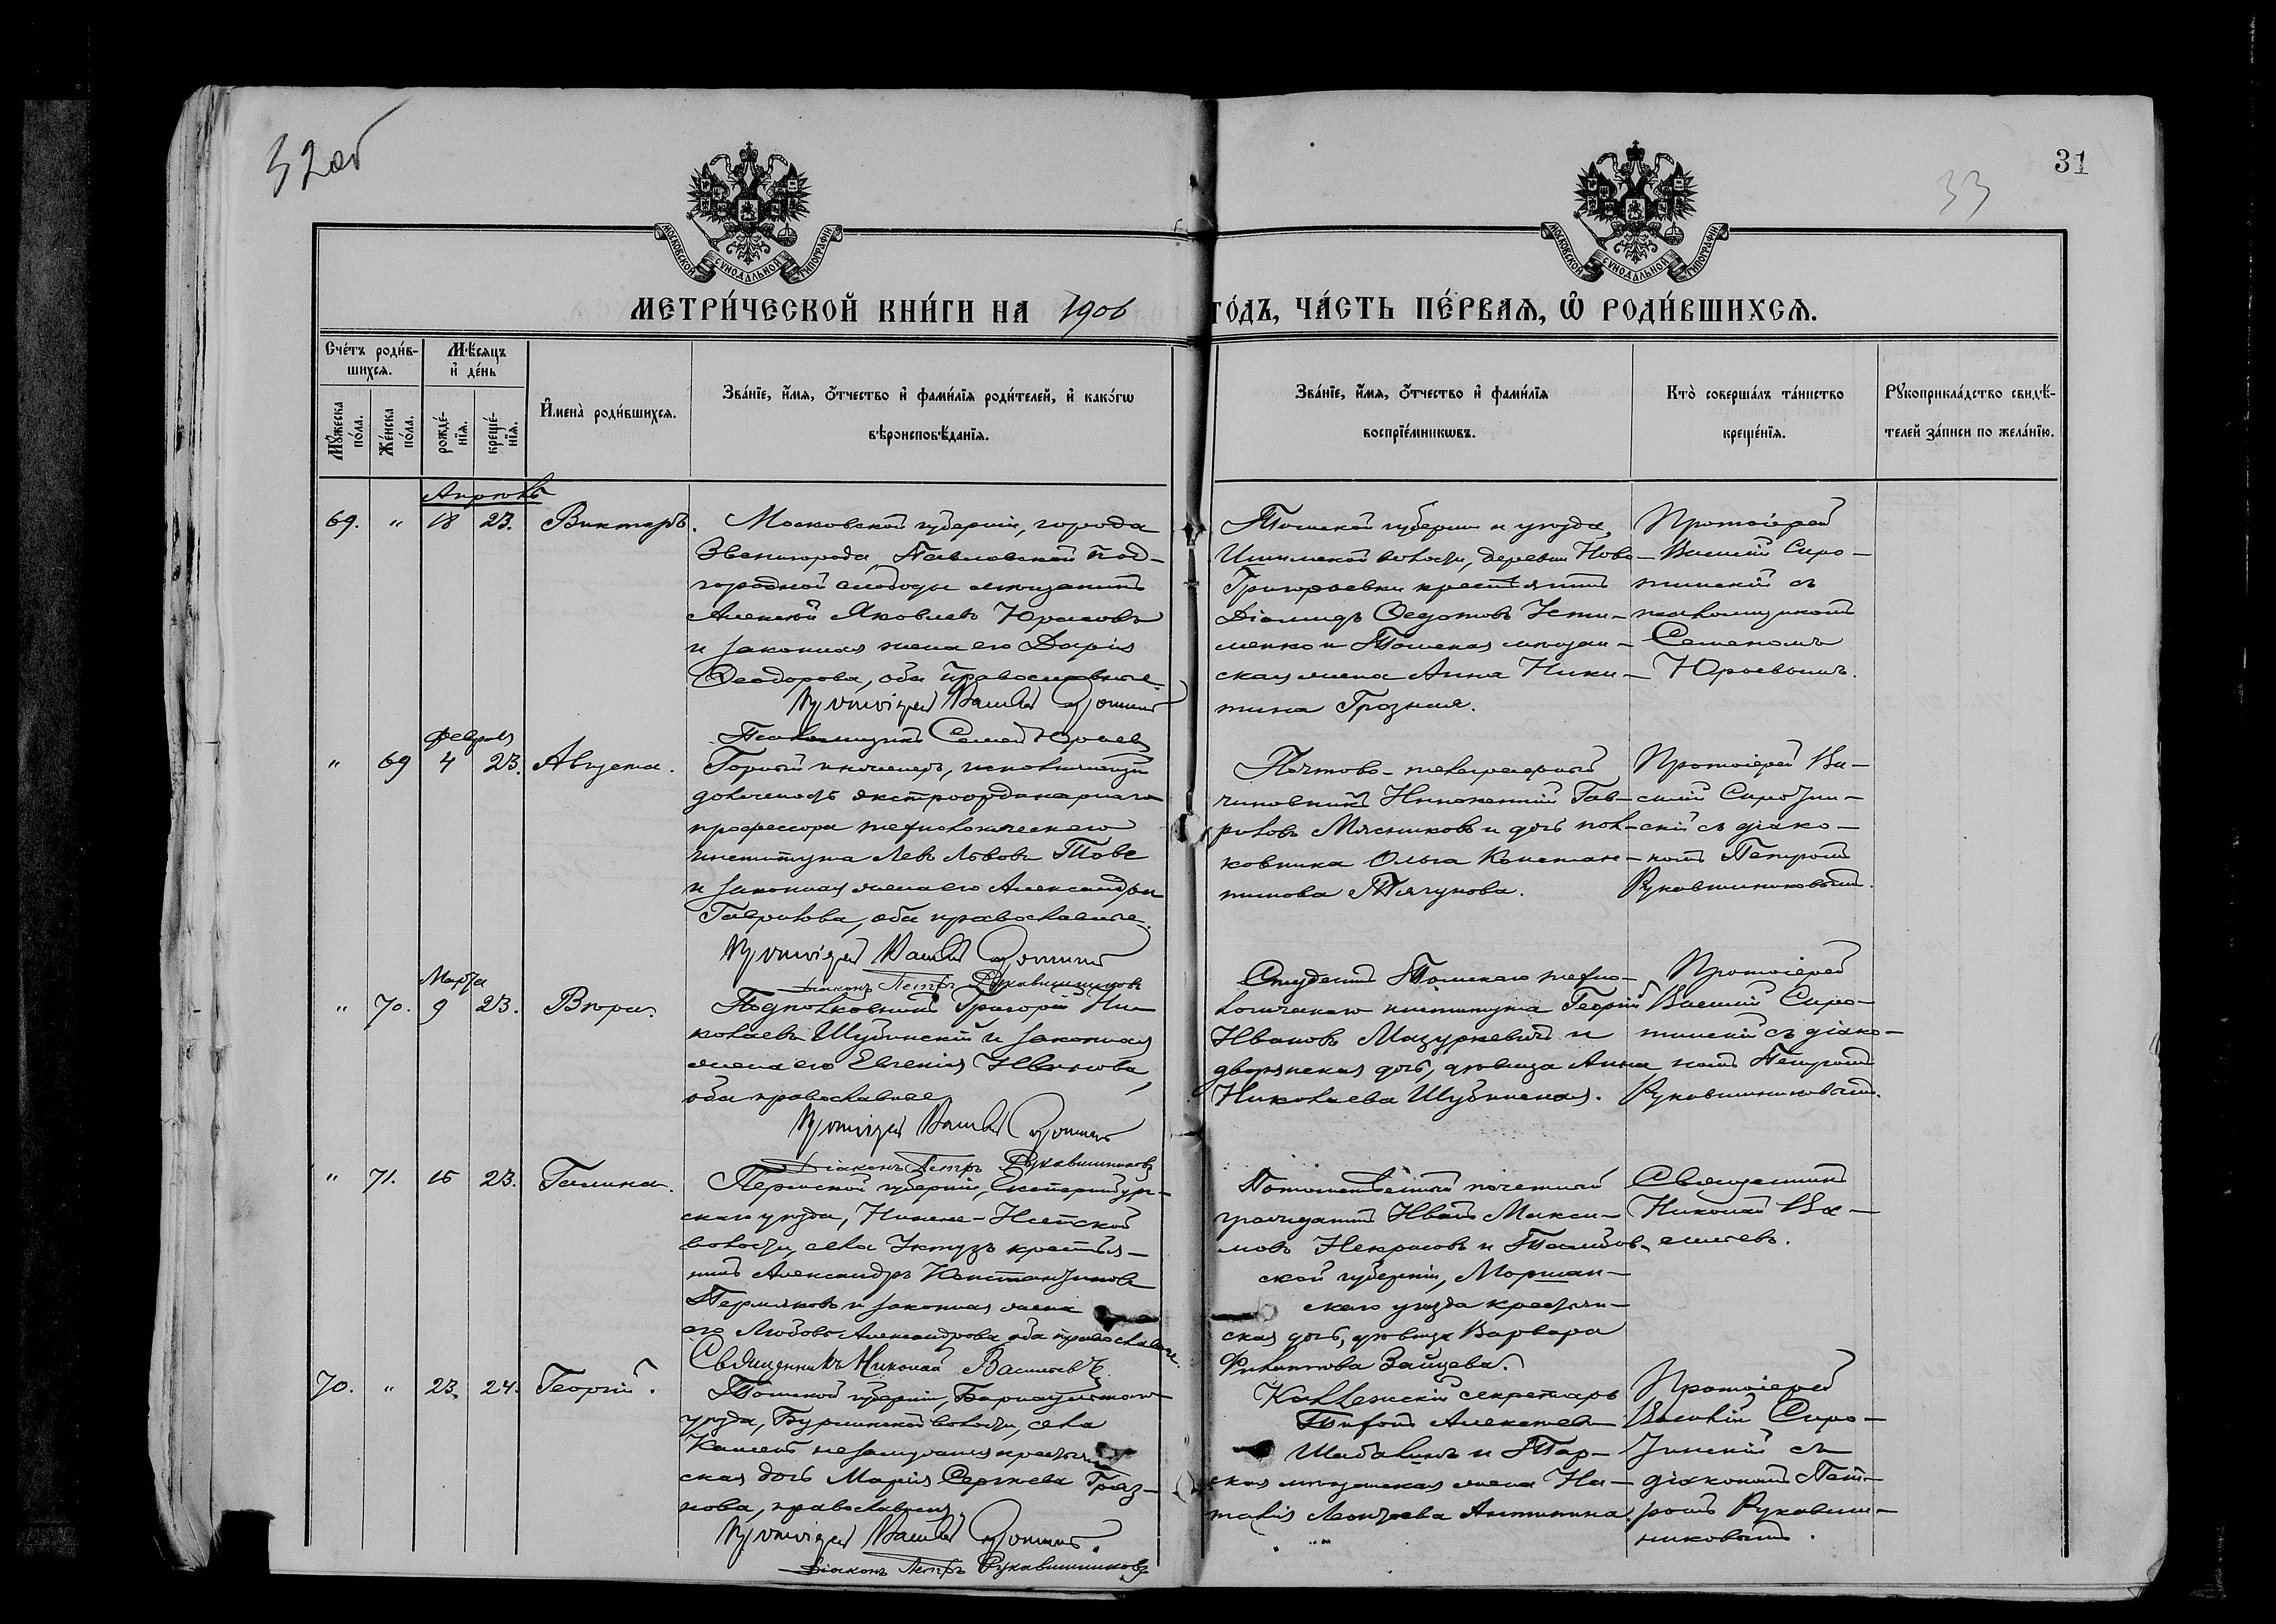 32об
31
33
МОСКОВСКОЙ СѴНОДАЛЬНОЙ ТИПОГРАФІИ
МОСКОВСКОЙ СѴНОДАЛЬНОЙ ТИПОГРАФІИ
МЕТРИ́ЧЕСКОЙ КНИ́ГИ НА 1906 ГО́ДЪ, ЧА́СТЬ ПЕ́РВАѦ, Ѽ РОДИ́ВШИХСѦ.
Сче́тъ роди́в-
шихсѧ.
Мꙋ́жеска
по́ла.
Же́нска
по́ла.
Мѣ́сѧцъ
и҆ де́нь
рожде́-
нїѧ.
креще́-
нїѧ.
И҆мена̀ роди́вшихсѧ.
Зва́нїе, и҆́мѧ, ѻ҆́тчество и҆ фами́лїѧ роди́телей, и҆ како́гѡ
вѣроисповѣ́данїѧ.
Зва́нїе, и҆́мѧ, ѻ҆́тчество и҆ фами́лїѧ
воспрїе́мникѡвъ.
Кто̀ соверша́лъ та́инство
креще́нїѧ.
Рꙋкоприкла́дство свидѣ́-
телей за́писи по жела́нїю.
Апрѣль
69. " 18 23. Викторъ.
Московской губерніи, города
Звенигорода, Павловской Под-
городной слободы мѣщанинъ
Алексѣй Яковлевъ Юрасовъ
и законная жена его Дарія
Ѳеодорова, оба православные.
Протоіерей Василій Сиротинскій
Псаломщикъ Семенъ Юрьевъ
Томской губерніи и уѣзда,
Ишимской волости, деревни Ново-
Григорьевки крестьянинъ
Діомидъ Ѳедотовъ Усти-
менко и Томская мѣщан-
ская жена Анна Ники-
тина Грозная.
Протоіерей
Василій Сиро-
тинскій съ
псаломщикомъ
Семеномъ
Юрьевымъ.
Февраля
" 69 4 23. Августа.
Горный инженеръ, исполняющій
должность экстраординарнаго
профессора технологическаго
института Левъ Львовъ Тове
и законная жена его Александра
Гаврилова, оба православные.
Протоіерей Василій Сиротинскій
Діаконъ Петръ Рукавишниковъ
Почтово-телеграфный
чиновникъ Иннокентій Гав-
риловъ Мясниковъ и дочь пол-
ковника Ольга Констан-
тинова Тягунова.
Протоіерей Ва-
силій Сиротин-
скій съ діако-
номъ Петромъ
Рукавишниковымъ.
Марта
" 70. 9 23. Вѣра.
Подполковникъ Григорій Ни-
колаевъ Шубинскій и законная
жена его Евгенія Иванова,
оба православные
Протоіерей Василій Сиротинскій
Діаконъ Петръ Рукавишниковъ
Студентъ Томскаго техно-
логическаго института Георгій
Ивановъ Мазуркевичъ и
дворянская дочь, дѣвица Анна
Николаева Шубинская.
Протоіерей
Василій Сиро-
тинскій съ діако-
номъ Петромъ
Рукавишниковымъ.
" 71. 15 23. Галина.
Пермской губерніи, Екатеринбур-
скаго уѣзда, Нижне-Исетской
волости, села Уктузъ крестья-
нинъ Александръ Константиновъ
Пермяковъ и законная жена
его Любовь Александрова, оба православные.
Священникъ Николай Васильевъ
Потомственный почетный
гражданинъ Иванъ Макси-
мовъ Некрасовъ и Тамбов-
ской губерніи, Моршан-
скаго уѣзда крестьян-
ская дочь, дѣвица Варвара
Филиппова Зайцева.
Священникъ
Николай Ва-
сильевъ.
70. " 23. 24. Георгій.
Томской губерніи, Барнаульскаго
уѣзда, Бурлинской волости, села
Камень незамужняя крестьян-
ская дочь Марія Сергѣева Гряз-
нова, православная
Протоіерей Василій Сиротинскій.
Діаконъ Петръ Рукавишниковъ
Коллежскій секретарь
Тифонъ Алексѣевъ
Шабалинъ и Тар-
ская мѣщанская жена На-
талія Леонтьева Антипина
Протоіерей
Василій Сиро-
тинскій съ
діакономъ Пет-
ромъ Рукавиш-
никовымъ.